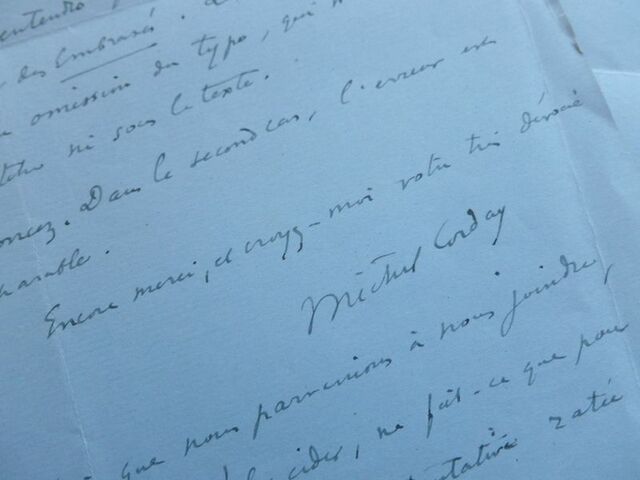 des Embrasés.
omission du typo, qui
ni sous le texte.
Dans le second cas, l'erreur est
Encore merci, et croyez-moi votre très dévoué
Michel Corday
que nous parvenions à nous joindre,
ne fût-ce que pour
tentative ratée